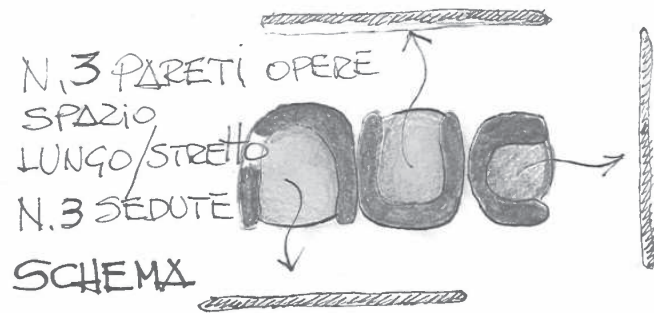 N.3 PARETI OPERE
SPAZIO
LUNGO/STRETTO
N.3 SEDUTE
SCHEMA
nuc